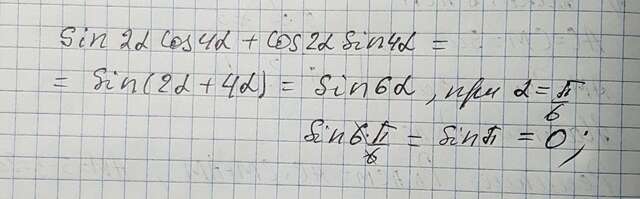 Sin 2α Cos 4α + Cos 2α Sin 4α =
= Sin(2α + 4α) = Sin 6α, при α = π/6
Sin 6·π/6 = Sin π = 0;